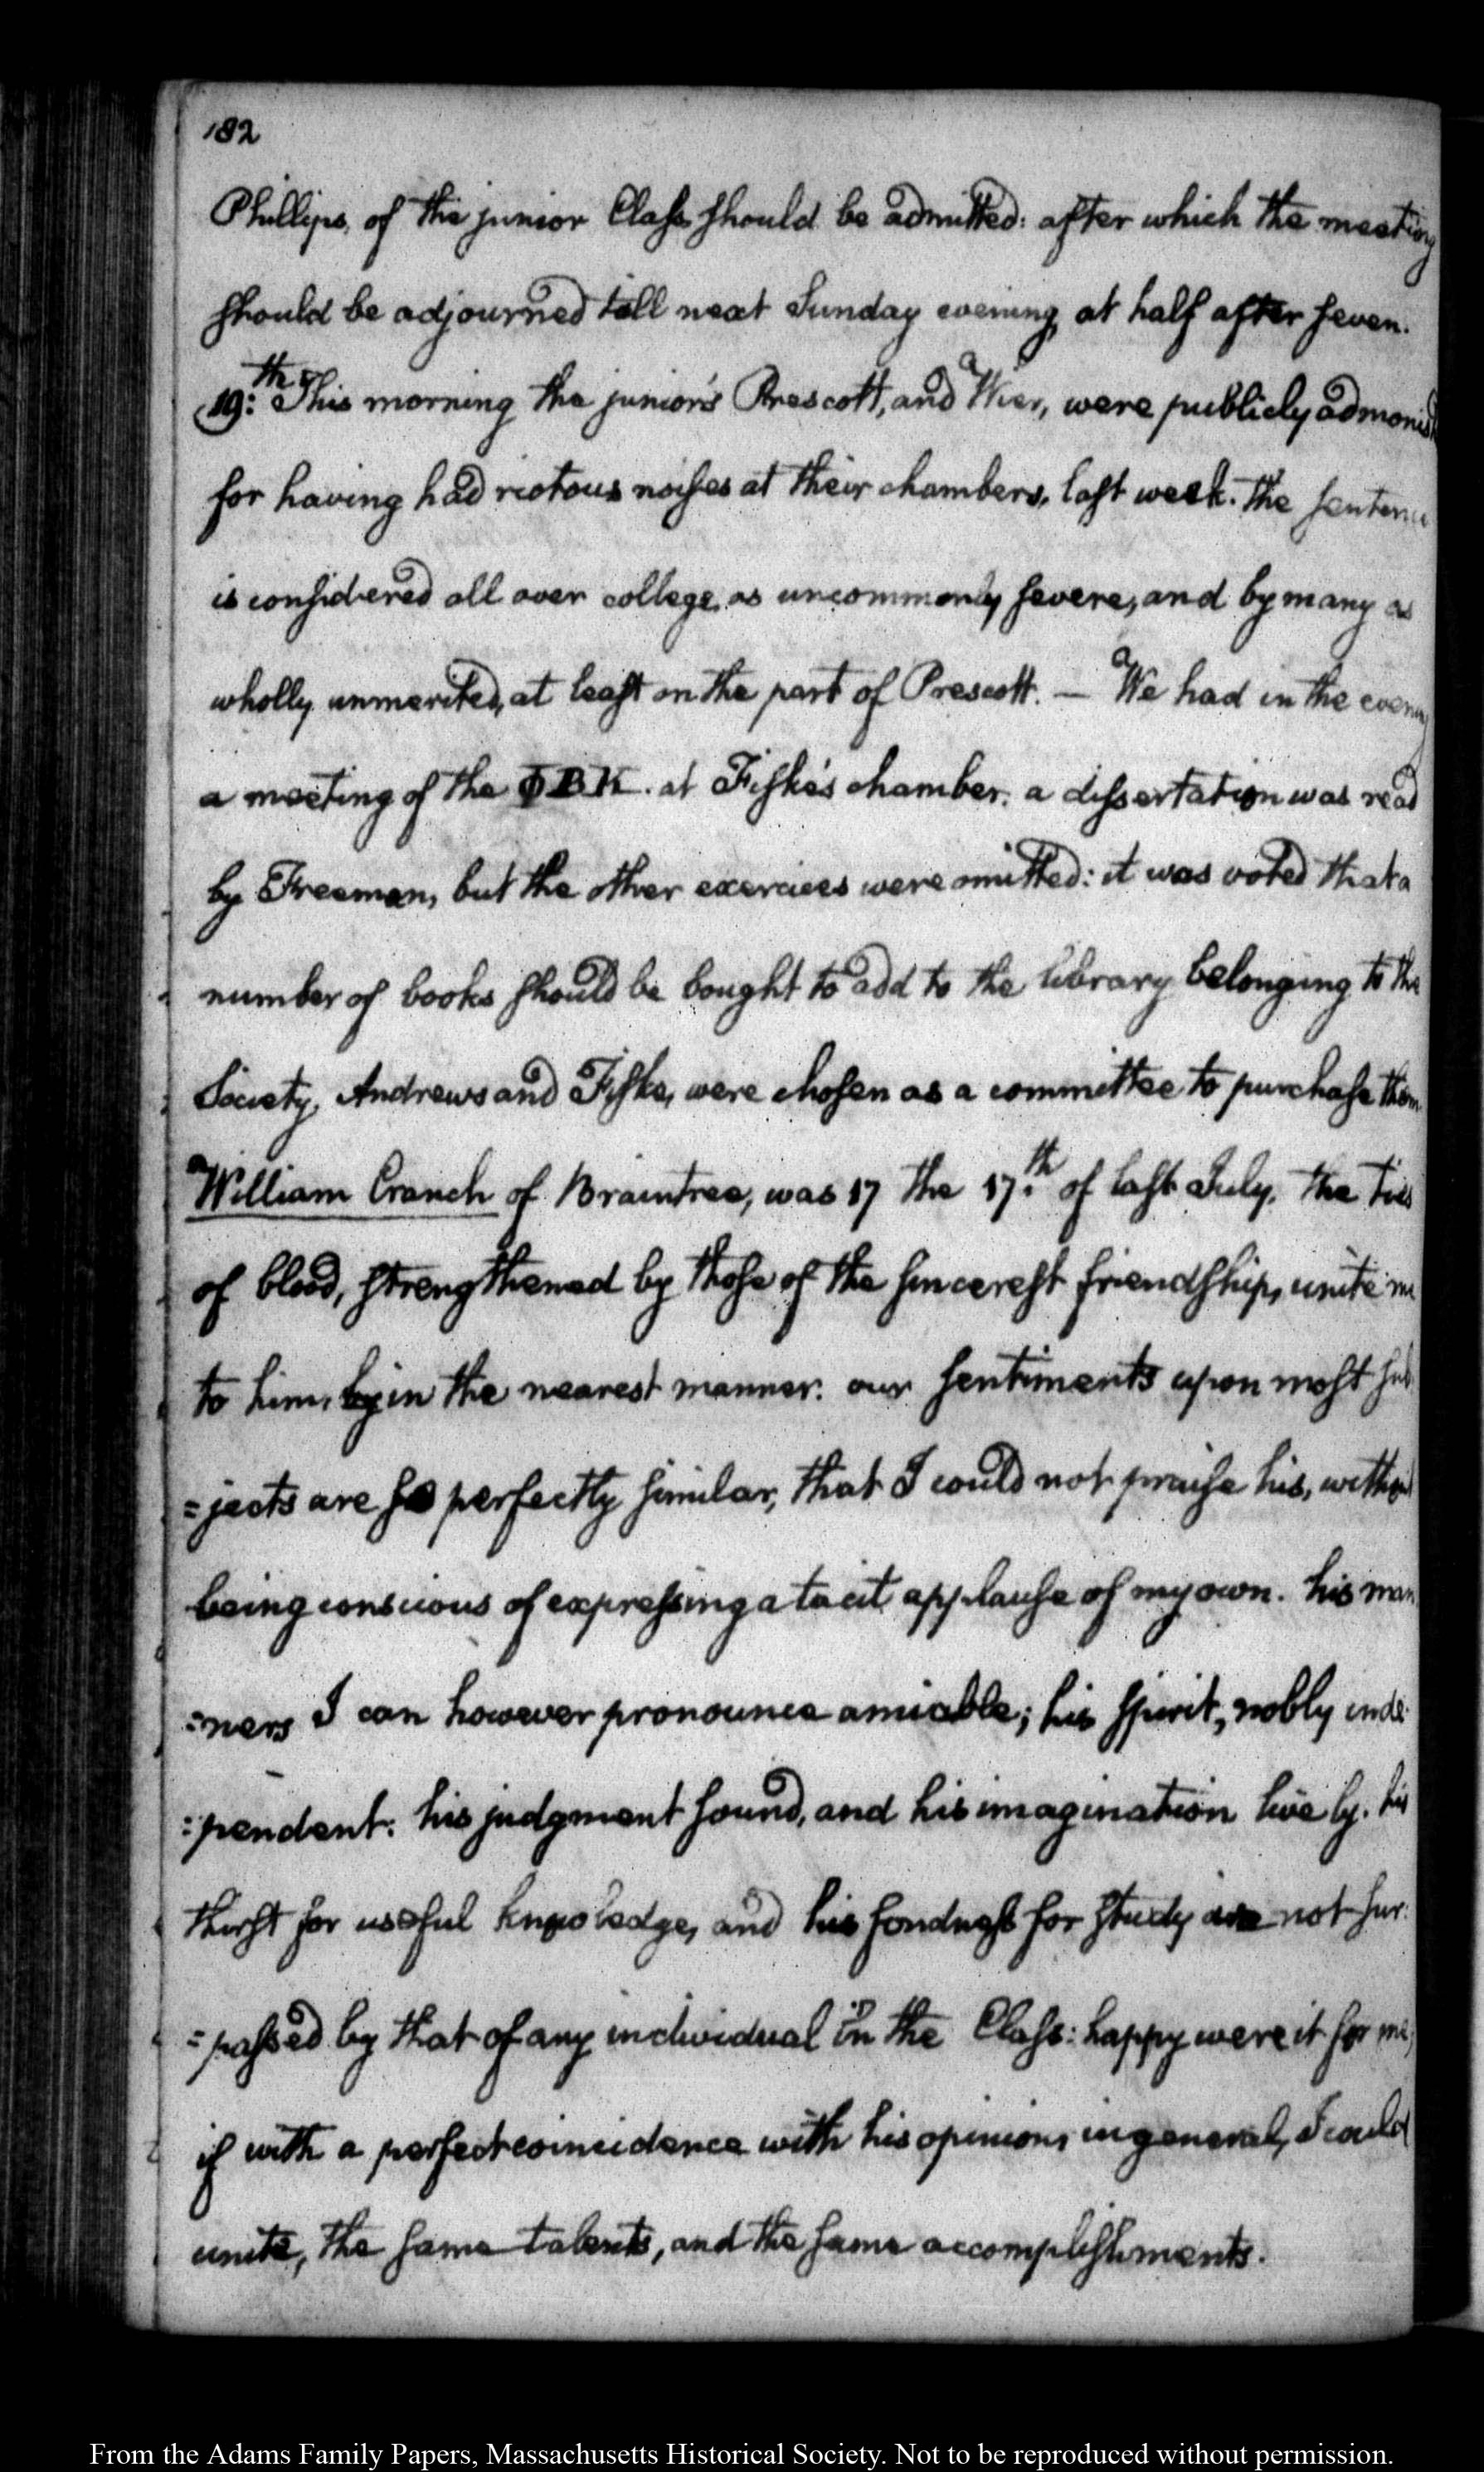 182
Phillips, of the junior Class should be admitted: after which the meeting
should be adjourned till next Sunday evening, at half after seven.
19:th This morning the junior's Prescott, and Wier, were publicly admonish
for having had riotous noises at their chambers, last week. The sentence
is considered all over college, as uncommonly severe, and by many as
wholly unmerited, at least on the part of Prescott. — We had in the evening
a meeting of the ΦBK. at Fiske's chamber. a dissertation was read
by Freeman, but the other exercises were omitted: it was voted that a
number of books should be bought to add to the library belonging to the
Society. Andrews and Fiske, were chosen as a committee to purchase them.
William Cranch of Braintree, was 17 the 17:th of last July. The ties
of blood, strengthened by those of the sincerest friendship, unite me
to him, by in the nearest manner. our sentiments upon most sub
=jects are so perfectly similar, that I could not praise his, without
being conscious of expressing a tacit applause of my own. his man
=ners I can however pronounce amiable; his spirit, nobly inde:
=pendent: his judgment sound, and his imagination lively. his
thirst for useful knowledge, and his fondness for study are not sur:
=passed by that of any individual in the Class: happy were it for me,
if with a perfect coincidence with his opinions in general, I could
unite, the same talents, and the same accomplishments.
From the Adams Family Papers, Massachusetts Historical Society. Not to be reproduced without permission.